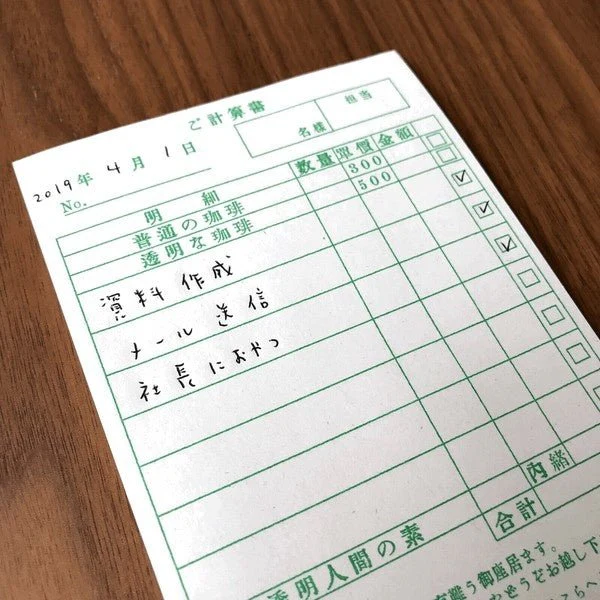 ご計算書
担当
名様
2019年 4月 1日
No.
明細 数量 單價 金額
普通の珈琲 300
透明な珈琲 500
資料作成
メール送信
社長におやつ
内緒
合計
透明人間の素
う御座居ます。
ぞお越し下